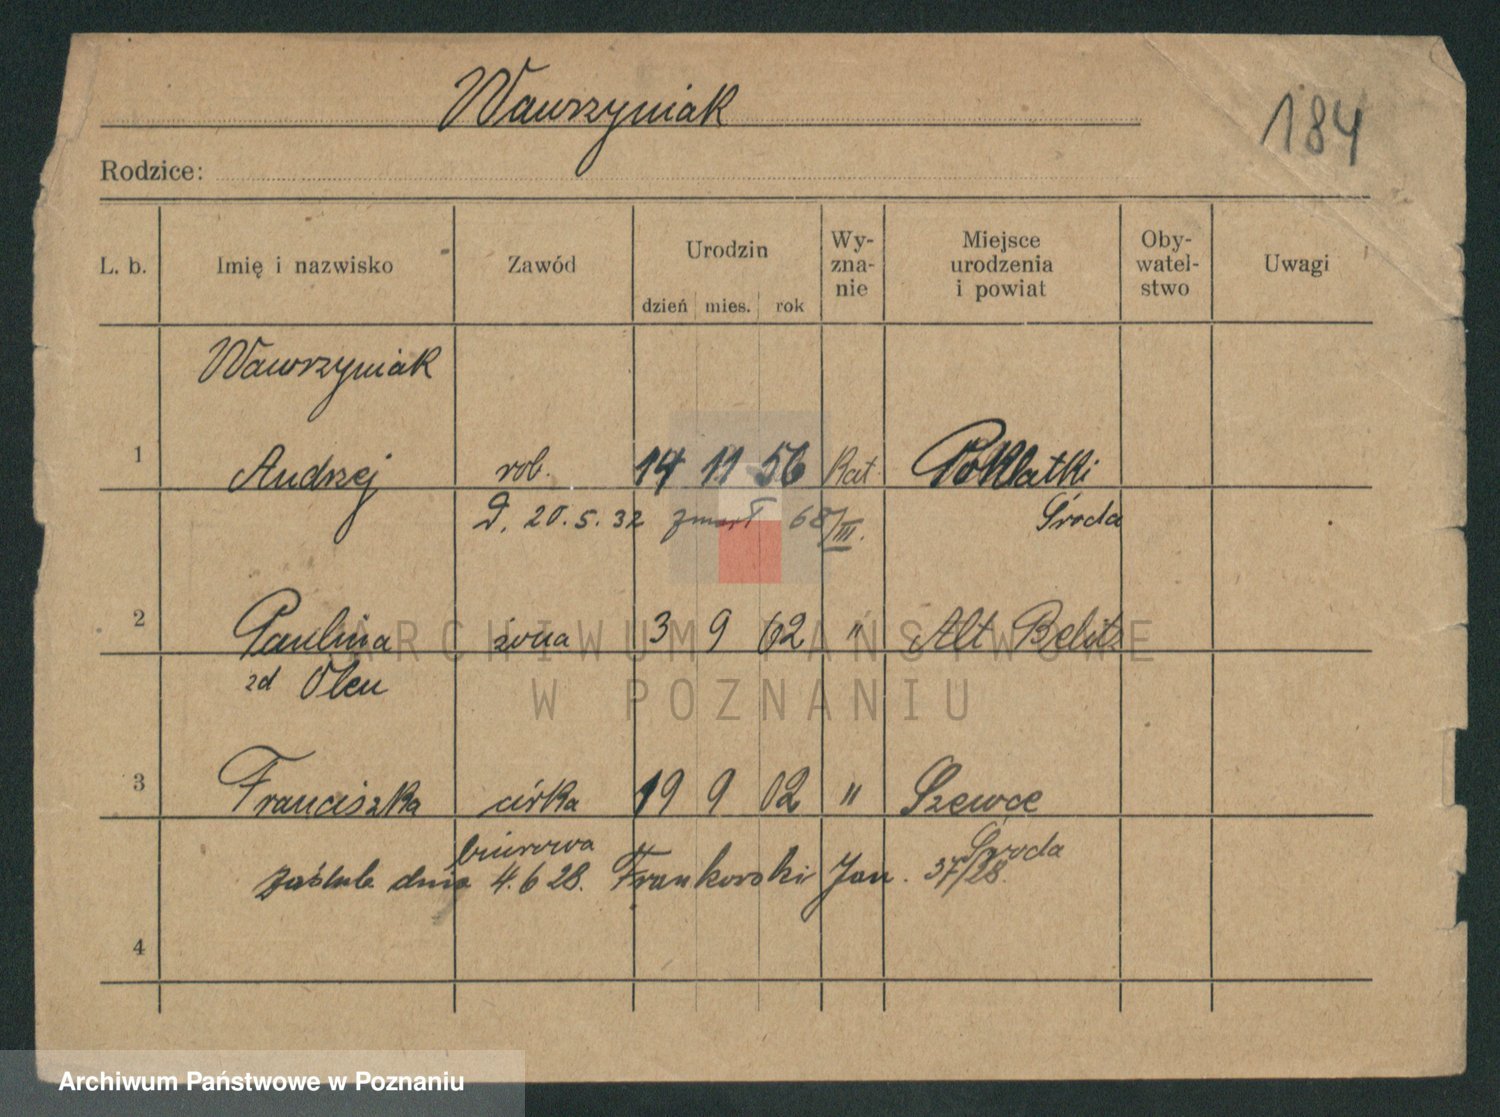 Wawrzyniak
184
Rodzice:
L. b. Imię i nazwisko Zawód Urodzin dzień mies. rok Wy-zna-nie Miejsce urodzenia i powiat Oby-watel-stwo Uwagi
Wawrzyniak
1 Andrzej rob. 14 11 56 kat. Poklatki
D. 20.5.32 zmarł 68/III. Środa
2 Paulina żona 3 9 62 " Alt Belitz
zd Olen
3 Franciszka córka 19 9 02 " Szewce
biurowa Środa
zaślub. dnia 4.6 28. Frankowski Jan. 37/28.
4
ARCHIWUM PAŃSTWOWE
W POZNANIU
Archiwum Państwowe w Poznaniu